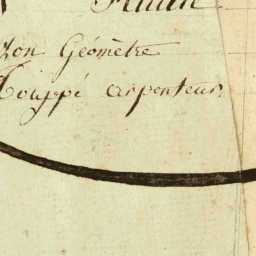 lon Géomètre
Touppé arpenteur